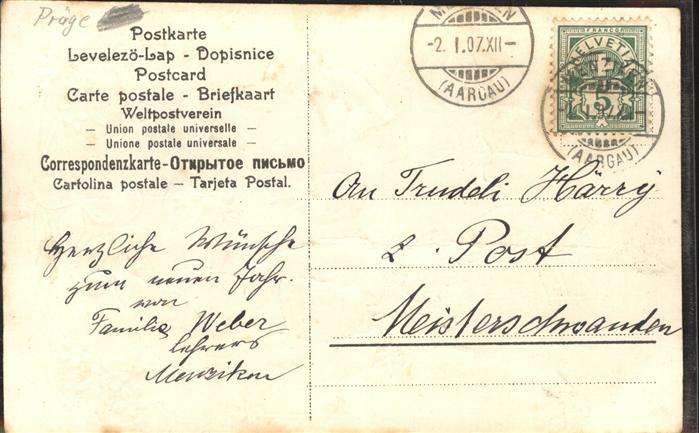 Präge
Postkarte
Levelezö-Lap - Dopisnice
Postcard
Carte postale - Briefkaart
Weltpostverein
— Union postale universelle —
— Unione postale universale —
Correspondenzkarte-Открытое письмо
Cartolina postale — Tarjeta Postal.
-2. I.07.XII-
(AARGAU)
FRANCO
HELVETIA
5
(AARGAU)
An Trudeli Härry
z. Post
Meisterschwanden
Herzliche Wünsche
zum neuen Jahr.
von
Familie Weber
Lehrers
Menziken